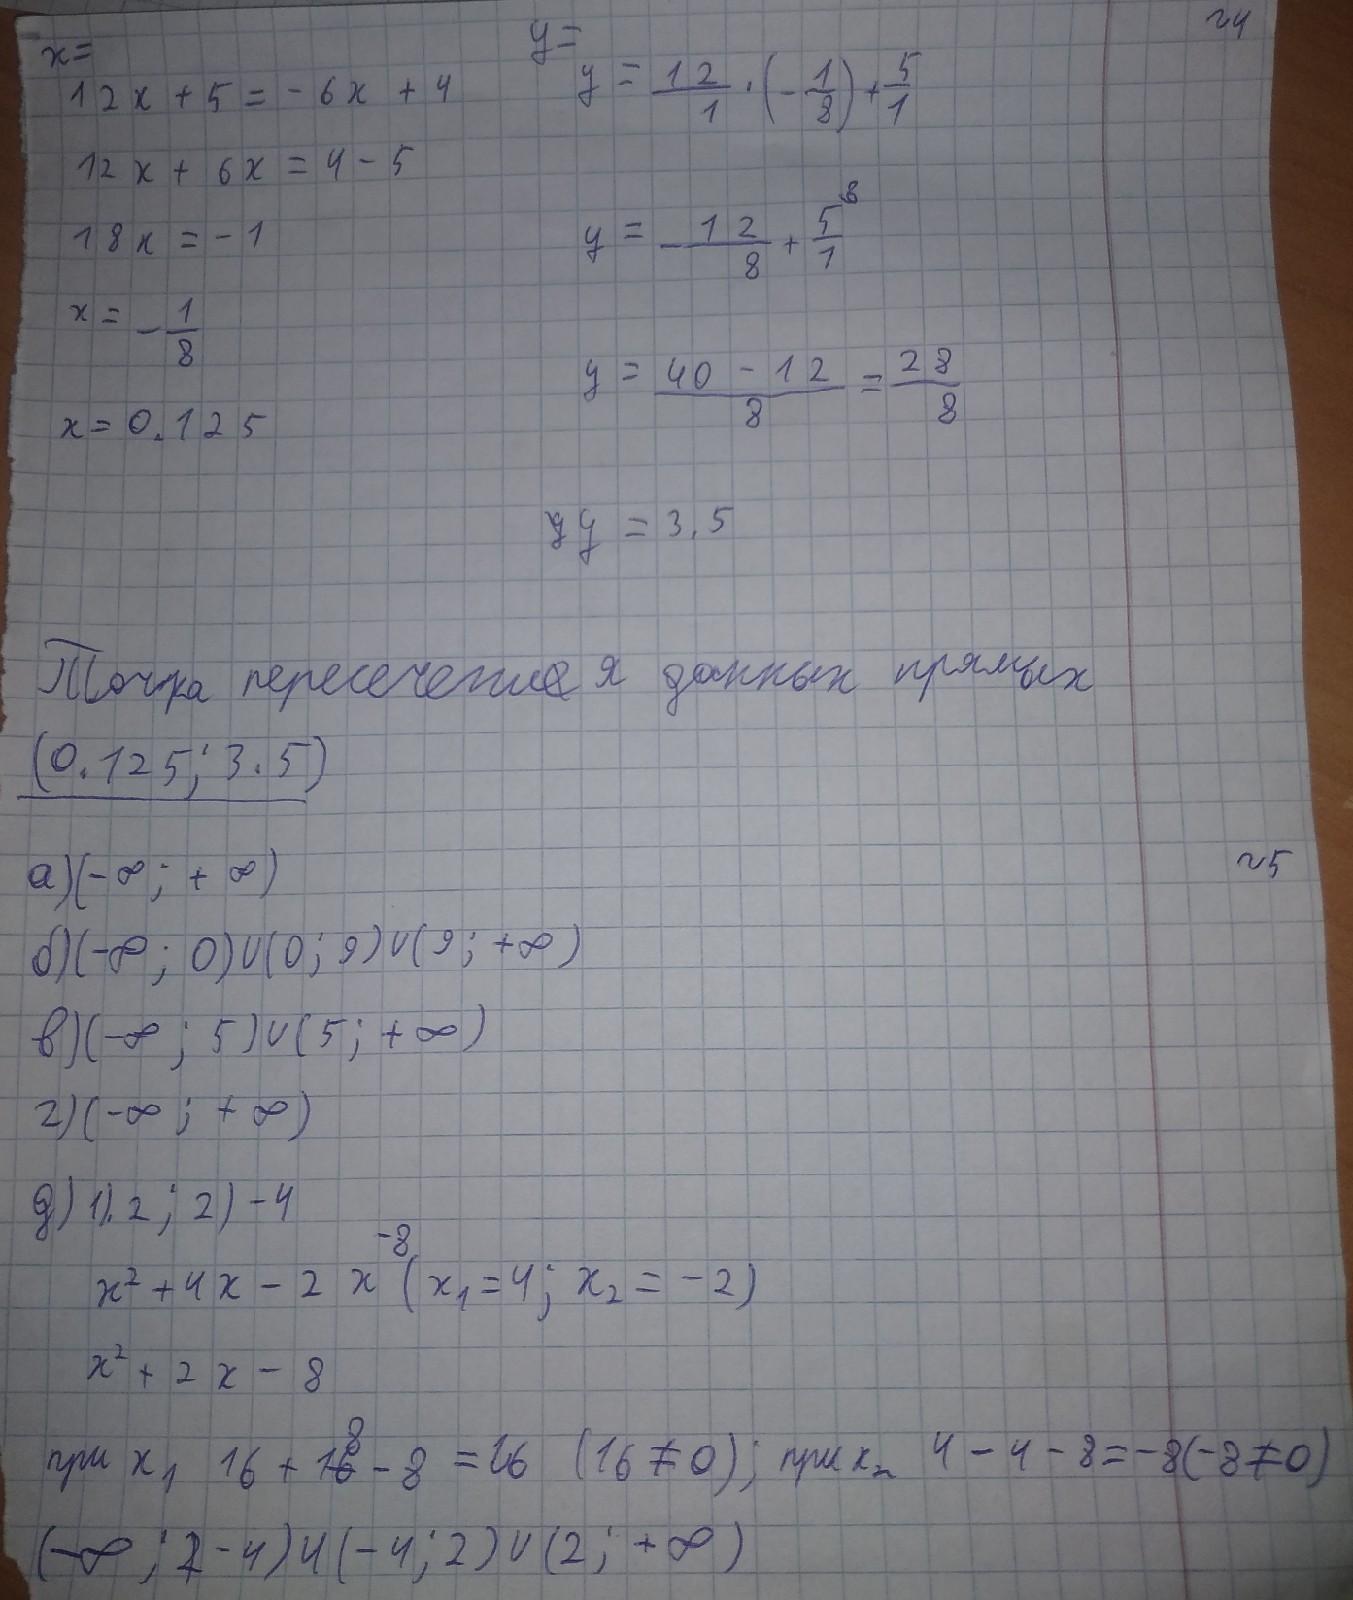 №4
x=
12x + 5 = - 6x + 4
12x + 6x = 4 - 5
18x = - 1
x = - 1/8
x = 0.125
y=
y = 12/1 · (- 1/8) + 5/1
y = - 12/8 + 5/1 8
y = 40 - 12/8 = 28/8
y = 3.5
Точка пересечения данных прямых
(0.125; 3.5)
№5
а) (-∞; +∞)
б) (-∞; 0)∪(0; 9)∪(9; +∞)
в) (-∞; 5)∪(5; +∞)
г) (-∞; +∞)
д) 1). 2; 2) -4
x² + 4x - 2x -8 (x₁ = 4; x₂ = -2)
x² + 2x - 8
при x₁ 16 + 8 - 8 = 16 (16 ≠ 0); при x₂ 4 - 4 - 8 = -8 (-8 ≠ 0)
(-∞; -4)∪(-4; 2)∪(2; +∞)